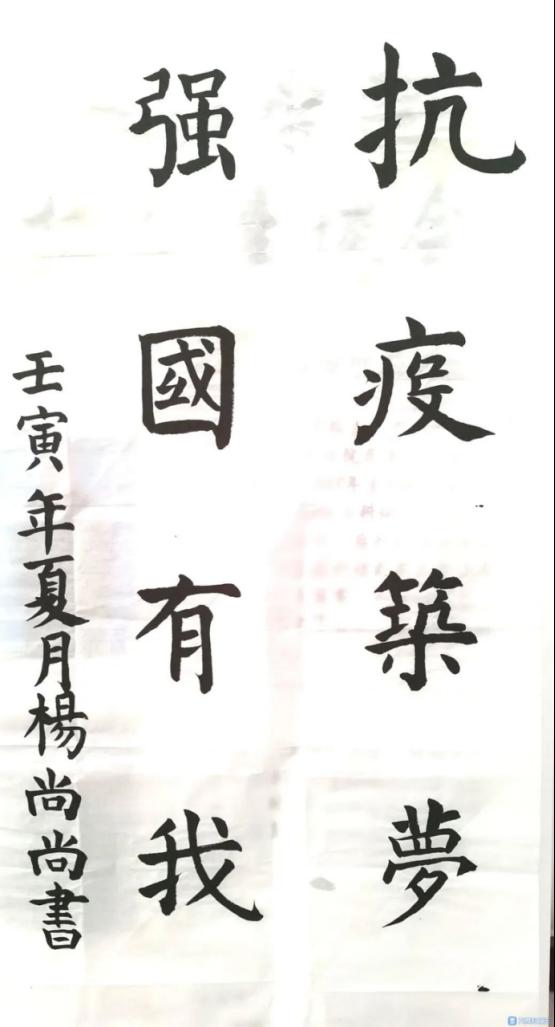 抗疫築夢
强國有我
壬寅年夏月楊尚尚書